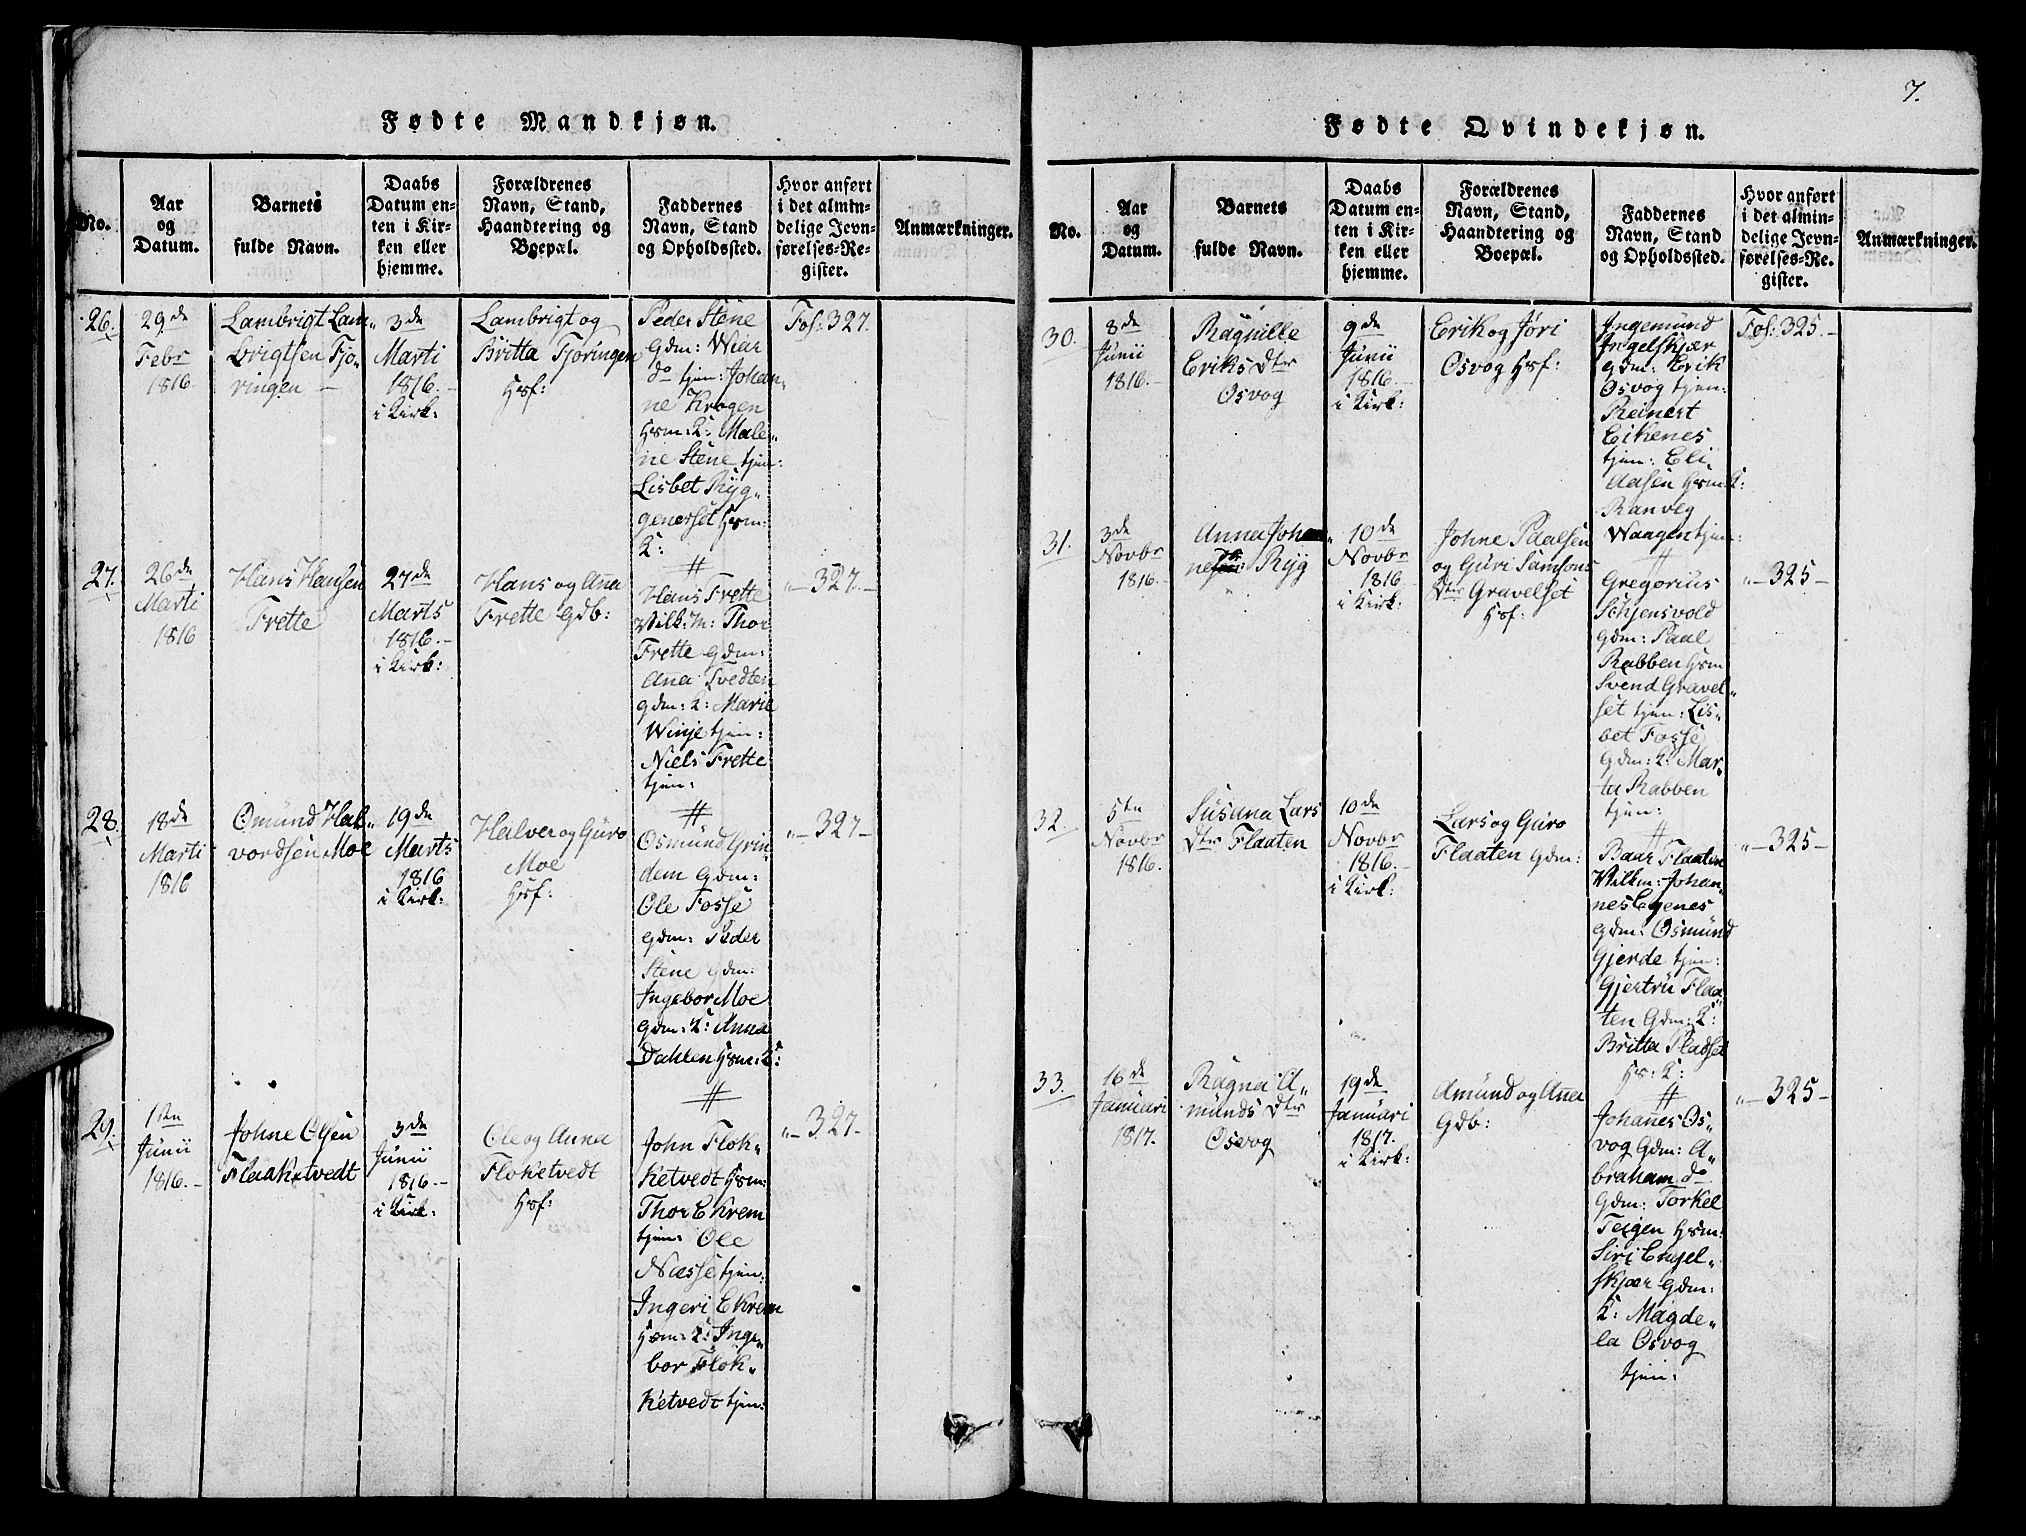 Fødte Mandkjøn.
No.
Aar
og
Datum.
Barnets
fulde Navn.
Daabs
Datum en-
ten i Kir-
ken eller
hjemme.
Forældrenes
Navn, Stand,
Haandtering og
Boepæl.
Faddernes
Navn, Stand
og Opholdssted.
Hvor anført
i det almin-
delige Jevn-
førelses-Re-
gister.
Anmærkninger.
26.
29de
Febr
1816.
Lambrigt Lam„
brigtsen Tjo„
ringen —
3de
Marti
1816.—
i Kirk:
Lambrigt og
Britta Tjoringen
Hsf:
Peder Stene
Gdm: Wiar
do tjen: Johan„
ne Krogen
Hsm: K: Male„
ne Stene tjen:
Lisbet Ryg„
generset Hsm:
K:
Fol: 327.
27.
26de
Marti
1816
Hans Hansen
Frette
27de
Marts
1816.—
i Kirk:
Hans og Ana
Frette Gdb:
#
Hans Frette
Ville: M: Thor
Frette Gdm:
Ana Tvedten
gdm: K: Marie
Winje tjen:
Niels Frette
tjen:
„—327.—
28.
18de
Marti
1816
Omund Hal„
vordsen Moe
19de
Marts
1816
i Kirk:
Halver og Guro
Moe
Hsf:
#
Osmund Grin
dem Gdm:
Ole Fosse
Gdm: Peder
Stene Gdm:
Ingebor Moe
Gdm: K: Anna
Dahlen Hsm: K:
„—327—
29.
1ste
Junii
1816.—
Johne Olsen
Flaaketvedt
3de
Junii
1816.—
i Kirk:
Ole og Anna
Floketvedt
Hsf:
#
John Flok„
ketvedt Hsm:
Thor Ekrem
tjen: Ole
Næsse tjen:
Ingeri Ekrem
Hsm: K: Inge„
bor Flok„
ketvedt tjen:
„—327—
7.
Fødte Qvindekjøn.
No.
Aar
og
Datum.
Barnets
fulde Navn.
Daabs
Datum en-
ten i Kir-
ken eller
hjemme.
Forældrenes
Navn, Stand,
Haandtering og
Boepæl.
Faddernes
Navn, Stand
og Opholdssted.
Hvor anført
i det almin-
delige Jevn-
førelses-Re-
gister.
Anmærkninger.
30.
8de
Junii
1816.—
Ragnille
Eriks Dtr
Osvog
9de
Junii
1816.—
i Kirk:
Erik og Jøri
Osvog Hsf:
Ingemund
Ingelskjær
Gdm: Erik
Osvog tjen:
Reinert
Eikenes
tjen: Eli
Aasen Hsm: K:
Ranveg
Waagen tjen:
Fol: 325.—
31.
3de
Novbr
1816.—
Anna Johan„
ne Ryg
10de
Novbr
1816.—
i Kirk:
Johne Paalsen
og Guri Samsons
Dtr Gravelset
Hsf:
#
Gregorius
Schjensvold
Gdm: Paal
Rabben Hsm
Svend Gravel„
set tjen: Lis„
bet Fosse
Gdm: K: Mar„
ta Rabben
tjen:
„—325—
32.
5te
Novbr
1816.
Susana Lars
Dtr Flaaten
10de
Novbr
1816.—
i Kirk:
Lars og Guro
Flaaten Gdm:
#
Baar Flaaten
Wilkm: Johan„
nes Egenes
Gdm: Osmund
Gjerde tjen:
Gjertru Flaa„
ten Gdm: K:
Britta Pladset
Hs: K:
„—325—
33.
16de
Januari
1817.
Ragna A„
munds Dtr
Osvog
19de
Januari
1817.
i Kirk:
Amund og Ana
Gdb:
#
Johanes Os„
vog Gdm: A„
braham do
Gdm: Torkel
Teigen Hsm:
Siri Engel„
skjær Gdm:
K: Magde„
la Osvog
tjen:
„—325—